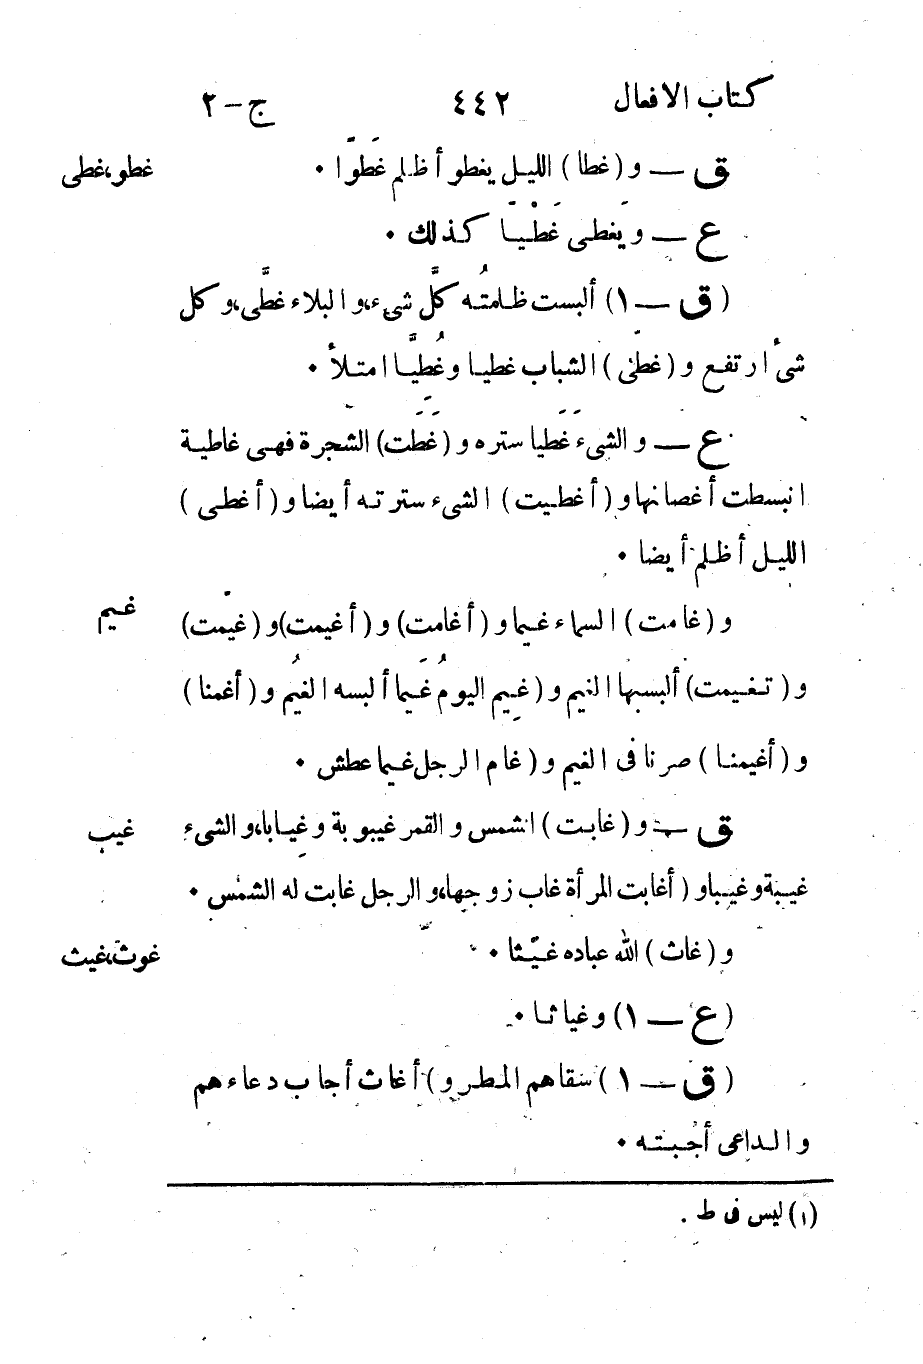 كتاب الافعال ٤٤٢ ج-٢
ق — و (غطا) الليل يغطو أظلم غَطوًّا ٠ غطو،غطى
ع — ويَغطى غَطْيًا كذلك ٠
(ق — ١) ألبست ظلمتُه كلَّ شىء،والبلاء غطَّى،وكل
شىأ ارتفع و (غطى) الشباب غطيا وغُطِيًّا امتلأ ٠
ع — و الشىء غَطيا ستره و (غَطَت) الشجرة فهى غاطية
انبسطت أغصانها و (أغطيت) الشىء سترته أيضا و (أغطى)
الليل أظلم أيضا ٠
و (غامت) السماء غيما و (أغامت) و (أغيمت) و (غيّمت) غيم
و (تغيمت) ألبسها الغيم و (غِيم اليومُ غَيما ألبسه الغيُم و (أغمنا)
و (أغيمنا) صرنا فى الغيم و (غام الرجل غيما عطش ٠
ق — و (غابت) الشمس و القمر غيبوبة وغيابا،و الشىء غيب
غيبة وغيبا و (أغابت المرأة غاب زوجها،و الرجل غابت له الشمس ٠
و (غاث) الله عباده غيثا ٠ غوث،غيث
(ع — ١) وغياثا ٠
(ق — ١) سقاهم المطر و) أغاث أجاب دعاءهم
و الداعى أجبته ٠
(١) ليس فى ط .